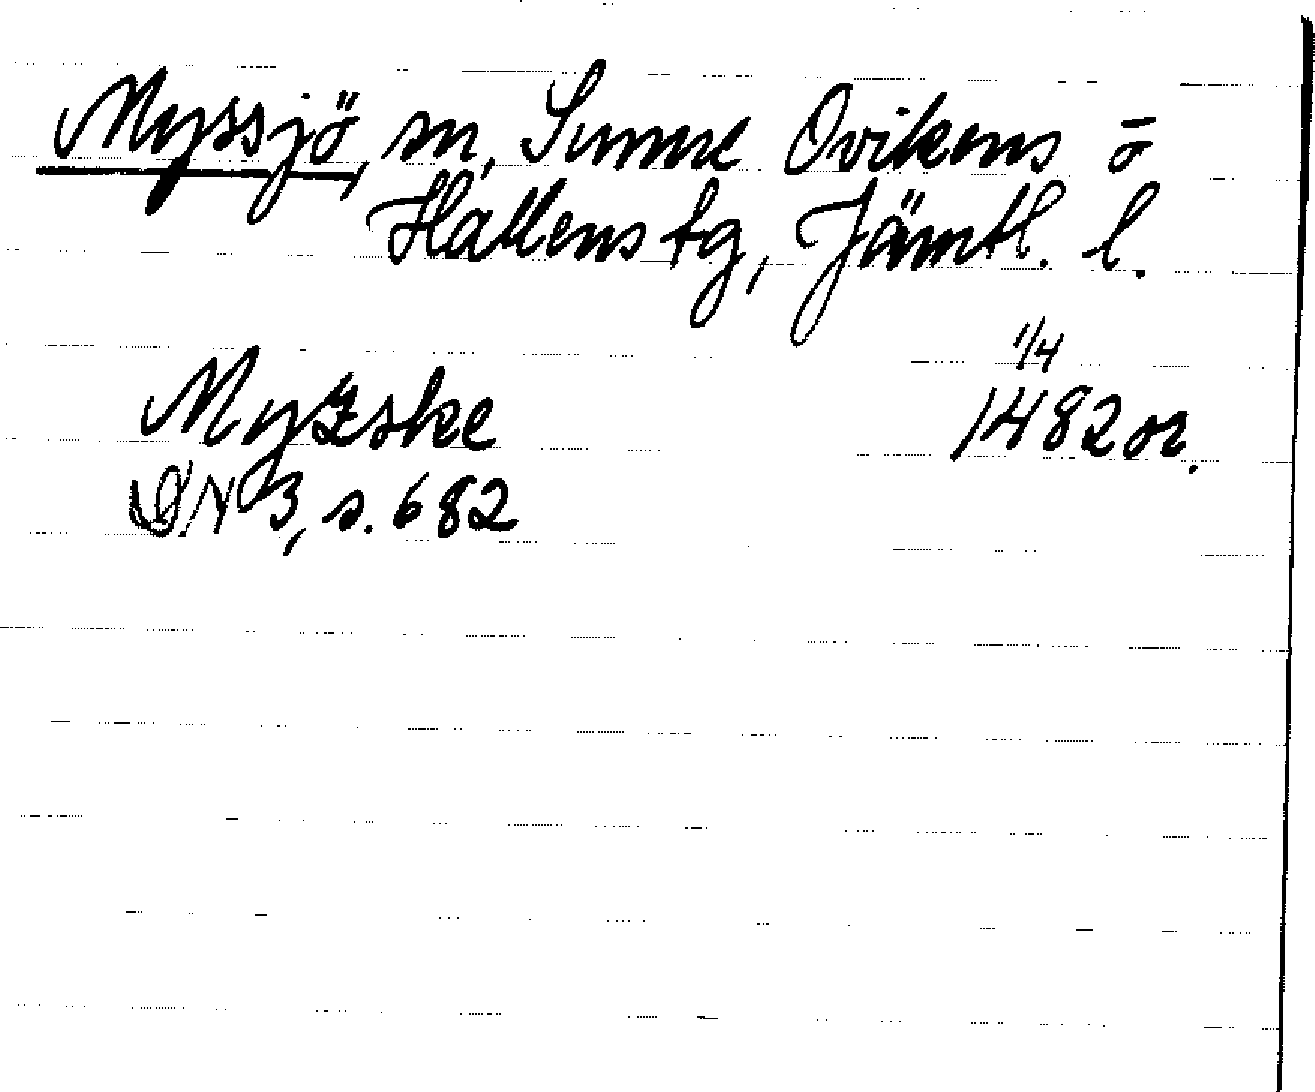 Myssjö, sn, Sunne Ovikens o
Hallens tg, Jämtl. l.
Myzske 1/4 1482 or.
DN 3, s. 682